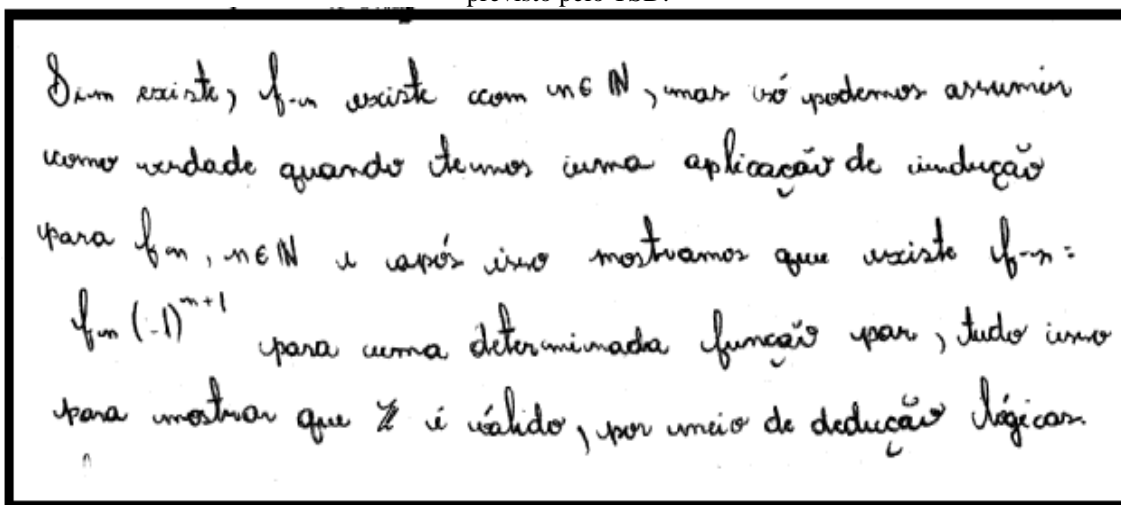 previsto pelo TSD?
Sim existe, f-n existe com n ∈ ℕ, mas só podemos assumir
como verdade quando temos uma aplicação de indução
para fn, n ∈ ℕ e após isso mostramos que existe f-n =
fn (-1)^{n+1} para uma determinada função par, tudo isso
para mostrar que ℤ é válido, por meio de dedução lógicas.